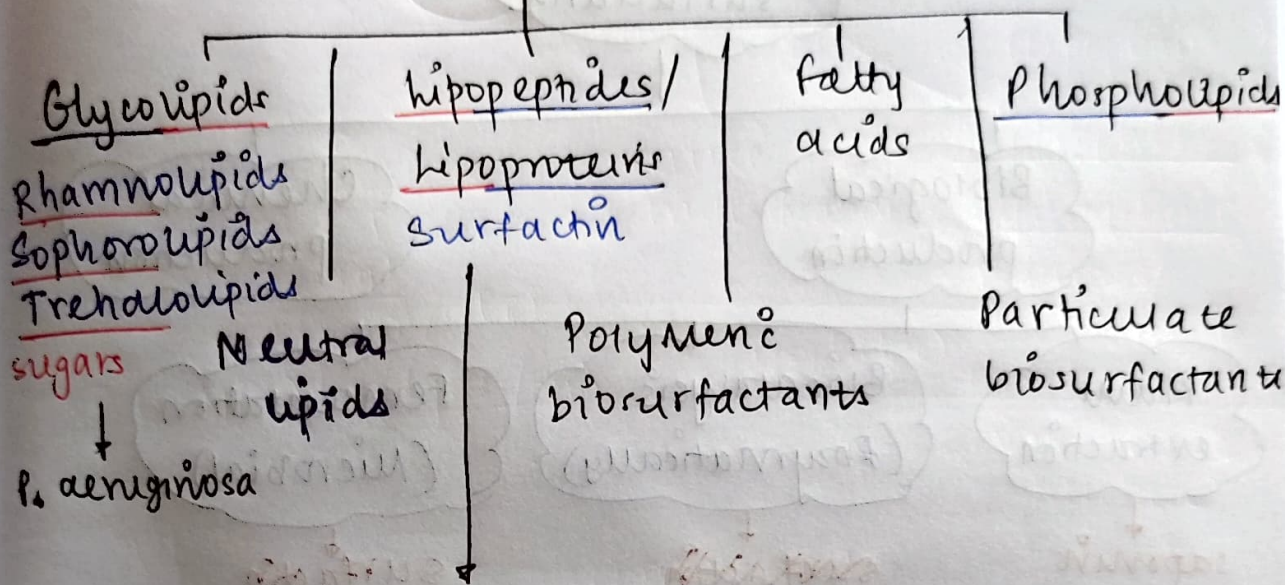 Glycolipids
Rhamnolipids
Sophorolipids
Trehalolipids
sugars
P. aeruginosa
Lipopeptides/
Lipoproteins
Surfactin
Fatty
acids
Phospholipids
Neutral
lipids
Polymeric
biosurfactants
Particulate
biosurfactants